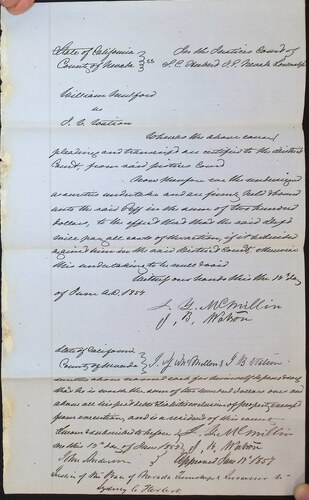 State of California } ss In the Justices Court of
County of Nevada J. P. Nevada Township
William Mulford
vs
J. B. Watson
Whereas the above cause
pleadings and transcript are certified to the District
Court, from said Justices Court
Now therefore we the undersigned
as sureties undertake and are firmly held & bound
unto the said Plff in the sum of two hundred
dollars, to the effect that that the said Deft
will pay all costs of the action, if it is decided
against him in the said District Court, otherwise
this undertaking to be null & void
Witness our hands this the 12th day
of June A.D. 1858
McMillin
J. B. Watson
State of California
County of Nevada } McMillin & J B Watson
above named each for himself deposes & says
that he is worth the sum of two hundred dollars over and
above all his just debts & liabilities exclusive of property exempt
from execution, and is a resident of this county
Sworn & subscribed to before McMillin
me this 12th day of June 1858 J. B. Watson
John Anderson Approved June 12th 1858
Justice of the Peace of Nevada Township & successor in